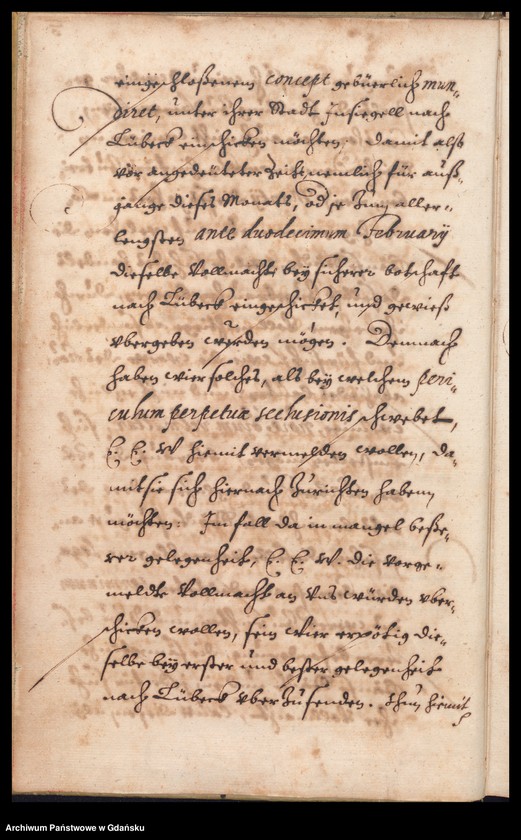 eingeschloßenem concept gebüerlich mun-
diret, unter ihrer Stadt Insiegell nach
Lübeck einschicken möchten, damit alß
vor angedeüteter Zeit, nemlich für auß-
gange dieses Monats, od je Zum aller-
lengsten ante duodecimum February
dieselbe Vollmacht bey sicherer botschafft
nach Lübeck eingeschicket, und gewieß
vbergeben werden mögen. Demnach
haben wier solches, als bey welchem peri-
culum perpetuæ seclusionis schwebet,
E. E. W hiemit vermelden wollen, da-
mit sie sich hiernach Zurichten haben
möchten. Im fall da in mangel beße-
rer gelegenheit, E. E. W. die vorge-
meldte Vollmacht an Vns würden vber-
schicken wollen, sein wier erpötig die-
selbe bey erster und bester gelegenheit
nach Lübeck vber Zusenden. Thun hiemit
Archiwum Państwowe w Gdańsku